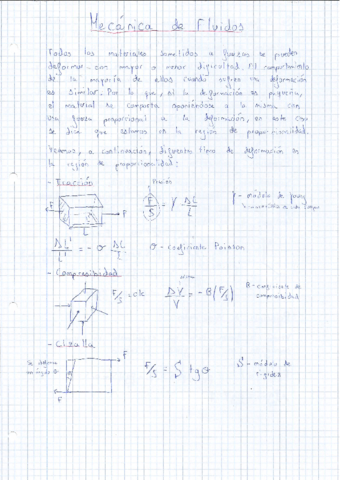 Mecánica de Fluidos
Todos los materiales sometidos a fuerzas se pueden
deformar con mayor o menor dificultad. El comportamiento
de la mayoría de ellos cuando sufren una deformación
es similar. Por lo que, si la deformación es pequeña,
el material se comporta oponiéndose a la misma con
una fuerza proporcional a la deformación, en este caso
se dice que estamos en la región de proporcionalidad.
Veamos, a continuación, diferentes tipos de deformación en
la región de proporcionalidad:
- Tracción
Presión
F/S = Y ΔL/L
Y - módulo de Young
F
F
L
ΔL'/L' = - σ ΔL/L
σ - coeficiente Poisson
- Compresibilidad
F/S = cte
ΔV/V = - B (F/S)
B - coeficiente de
compresibilidad
- Cizalla
Se deforma
un ángulo θ
F
F
F/S = S tg θ
S - módulo de
rigidez